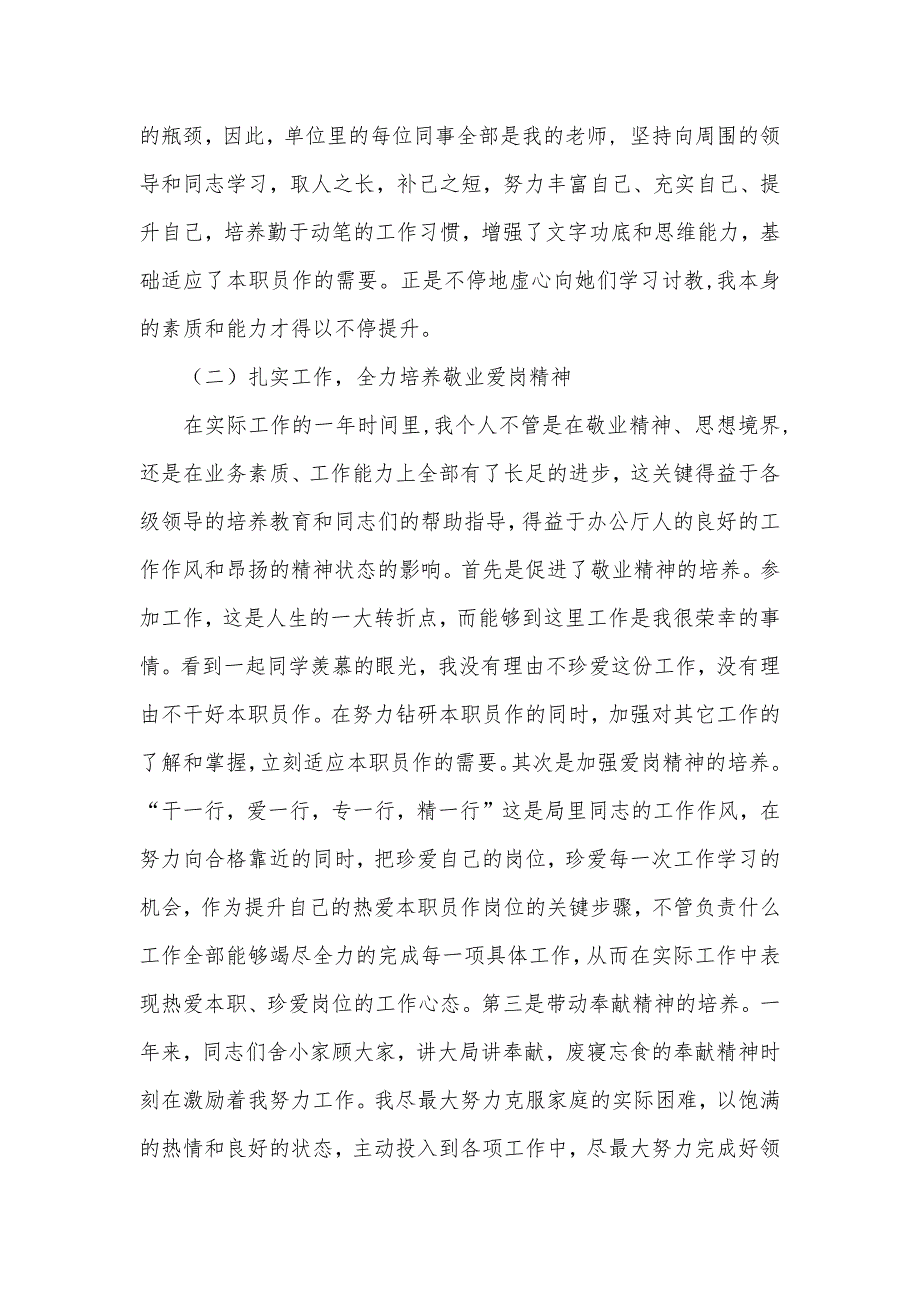 的瓶颈，因此，单位里的每位同事全部是我的老师，坚持向周围的领
导和同志学习，取人之长，补己之短，努力丰富自己、充实自己、提
升自己，培养勤于动笔的工作习惯，增强了文字功底和思维能力，基
础适应了本职员作的需要。正是不停地虚心向她们学习讨教,我本身
的素质和能力才得以不停提升。
（二）扎实工作，全力培养敬业爱岗精神
在实际工作的一年时间里,我个人不管是在敬业精神、思想境界,
还是在业务素质、工作能力上全部有了长足的进步，这关键得益于各
级领导的培养教育和同志们的帮助指导，得益于办公厅人的良好的工
作作风和昂扬的精神状态的影响。首先是促进了敬业精神的培养。参
加工作，这是人生的一大转折点，而能够到这里工作是我很荣幸的事
情。看到一起同学羡慕的眼光，我没有理由不珍爱这份工作，没有理
由不干好本职员作。在努力钻研本职员作的同时，加强对其它工作的
了解和掌握，立刻适应本职员作的需要。其次是加强爱岗精神的培养。
“干一行，爱一行，专一行，精一行”这是局里同志的工作作风，在
努力向合格靠近的同时，把珍爱自己的岗位，珍爱每一次工作学习的
机会，作为提升自己的热爱本职员作岗位的关键步骤，不管负责什么
工作全部能够竭尽全力的完成每一项具体工作，从而在实际工作中表
现热爱本职、珍爱岗位的工作心态。第三是带动奉献精神的培养。一
年来，同志们舍小家顾大家，讲大局讲奉献，废寝忘食的奉献精神时
刻在激励着我努力工作。我尽最大努力克服家庭的实际困难，以饱满
的热情和良好的状态，主动投入到各项工作中，尽最大努力完成好领